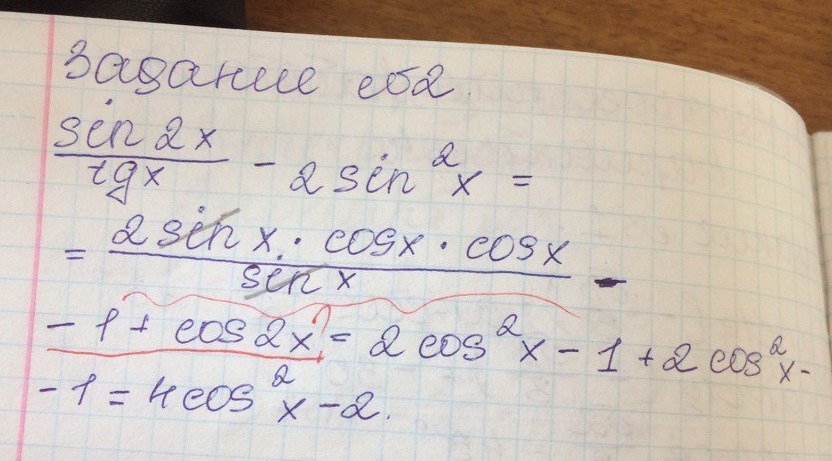 Задание №2.
sin 2x / tg x - 2 sin²x =
= 2 sin x · cos x · cos x / sin x -
- 1 + cos 2x = 2 cos²x - 1 + 2 cos²x -
- 1 = 4 cos²x - 2.